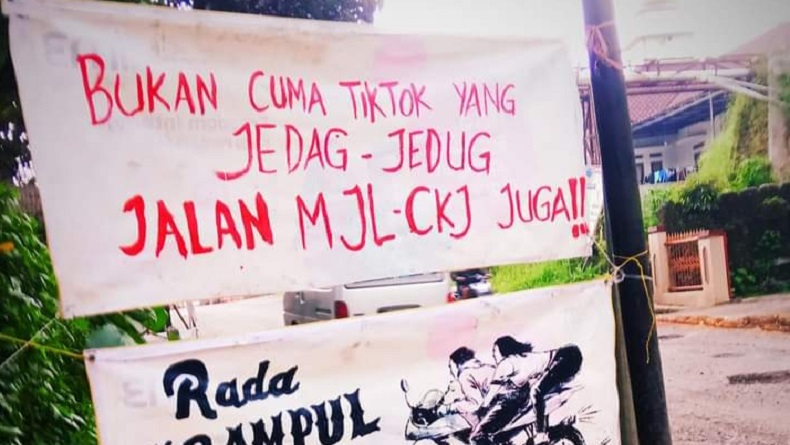 BUKAN CUMA TIKTOK YANG
JEDAG-JEDUG
JALAN MJL-CKJ JUGA!!
Rada